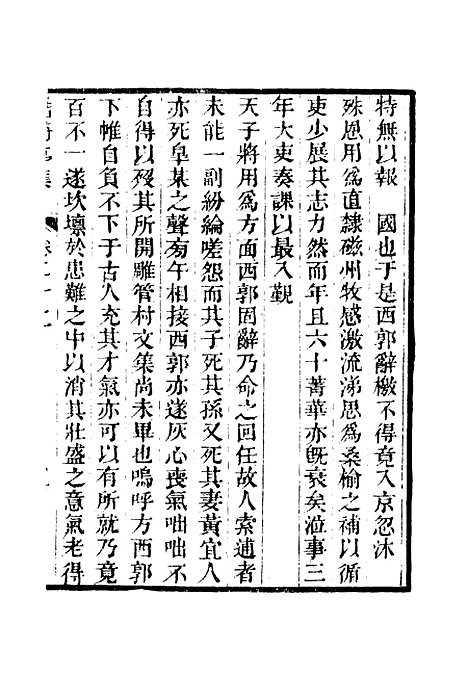 特無以報　國也于是西郭辭檄不得竟入京忽沐
殊恩用爲直隸磁州牧感激流涕思爲桑榆之補以循
吏少展其志力然而年且六十菁華亦旣衰矣涖事三
年大吏奏課以最入覲
天子將用爲方面西郭固辭乃命之回任故人索逋者
未能一副紛綸嗟怨而其子死其孫又死其妻黃宜人
亦死臯某之聲旁午相接西郭亦遂灰心喪氣咄咄不
自得以歿其所開雕管村文集尚未畢也嗚呼方西郭
下帷自負不下于古人充其才氣亦可以有所就乃竟
百不一遂坎壈於患難之中以消其壯盛之意氣老得
鮚埼亭集　卷二十